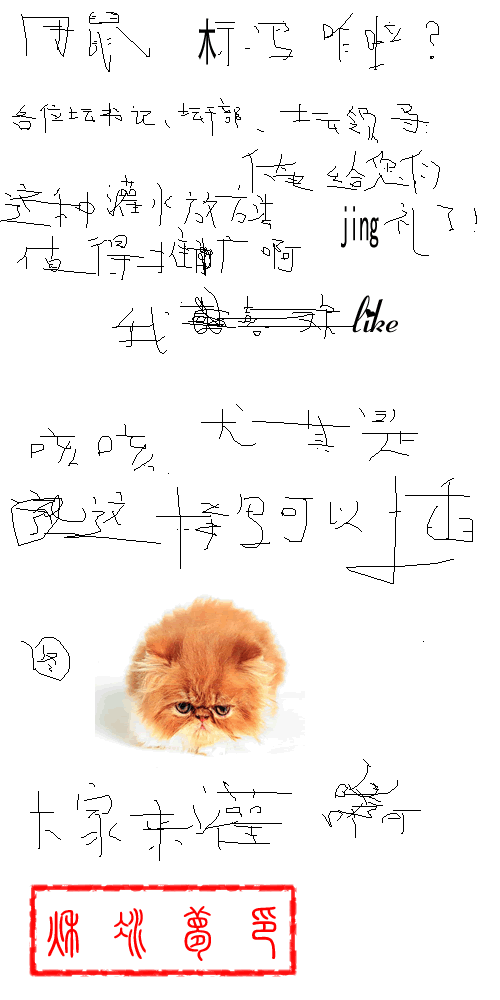 用鼠标写咋啦?
各位坛书记、坛干部、坛领导
给您们
jing礼了!
这种灌水方法
值得推广啊
我 like
咳咳 尤其是
这样写可以插
图
大家来灌啊